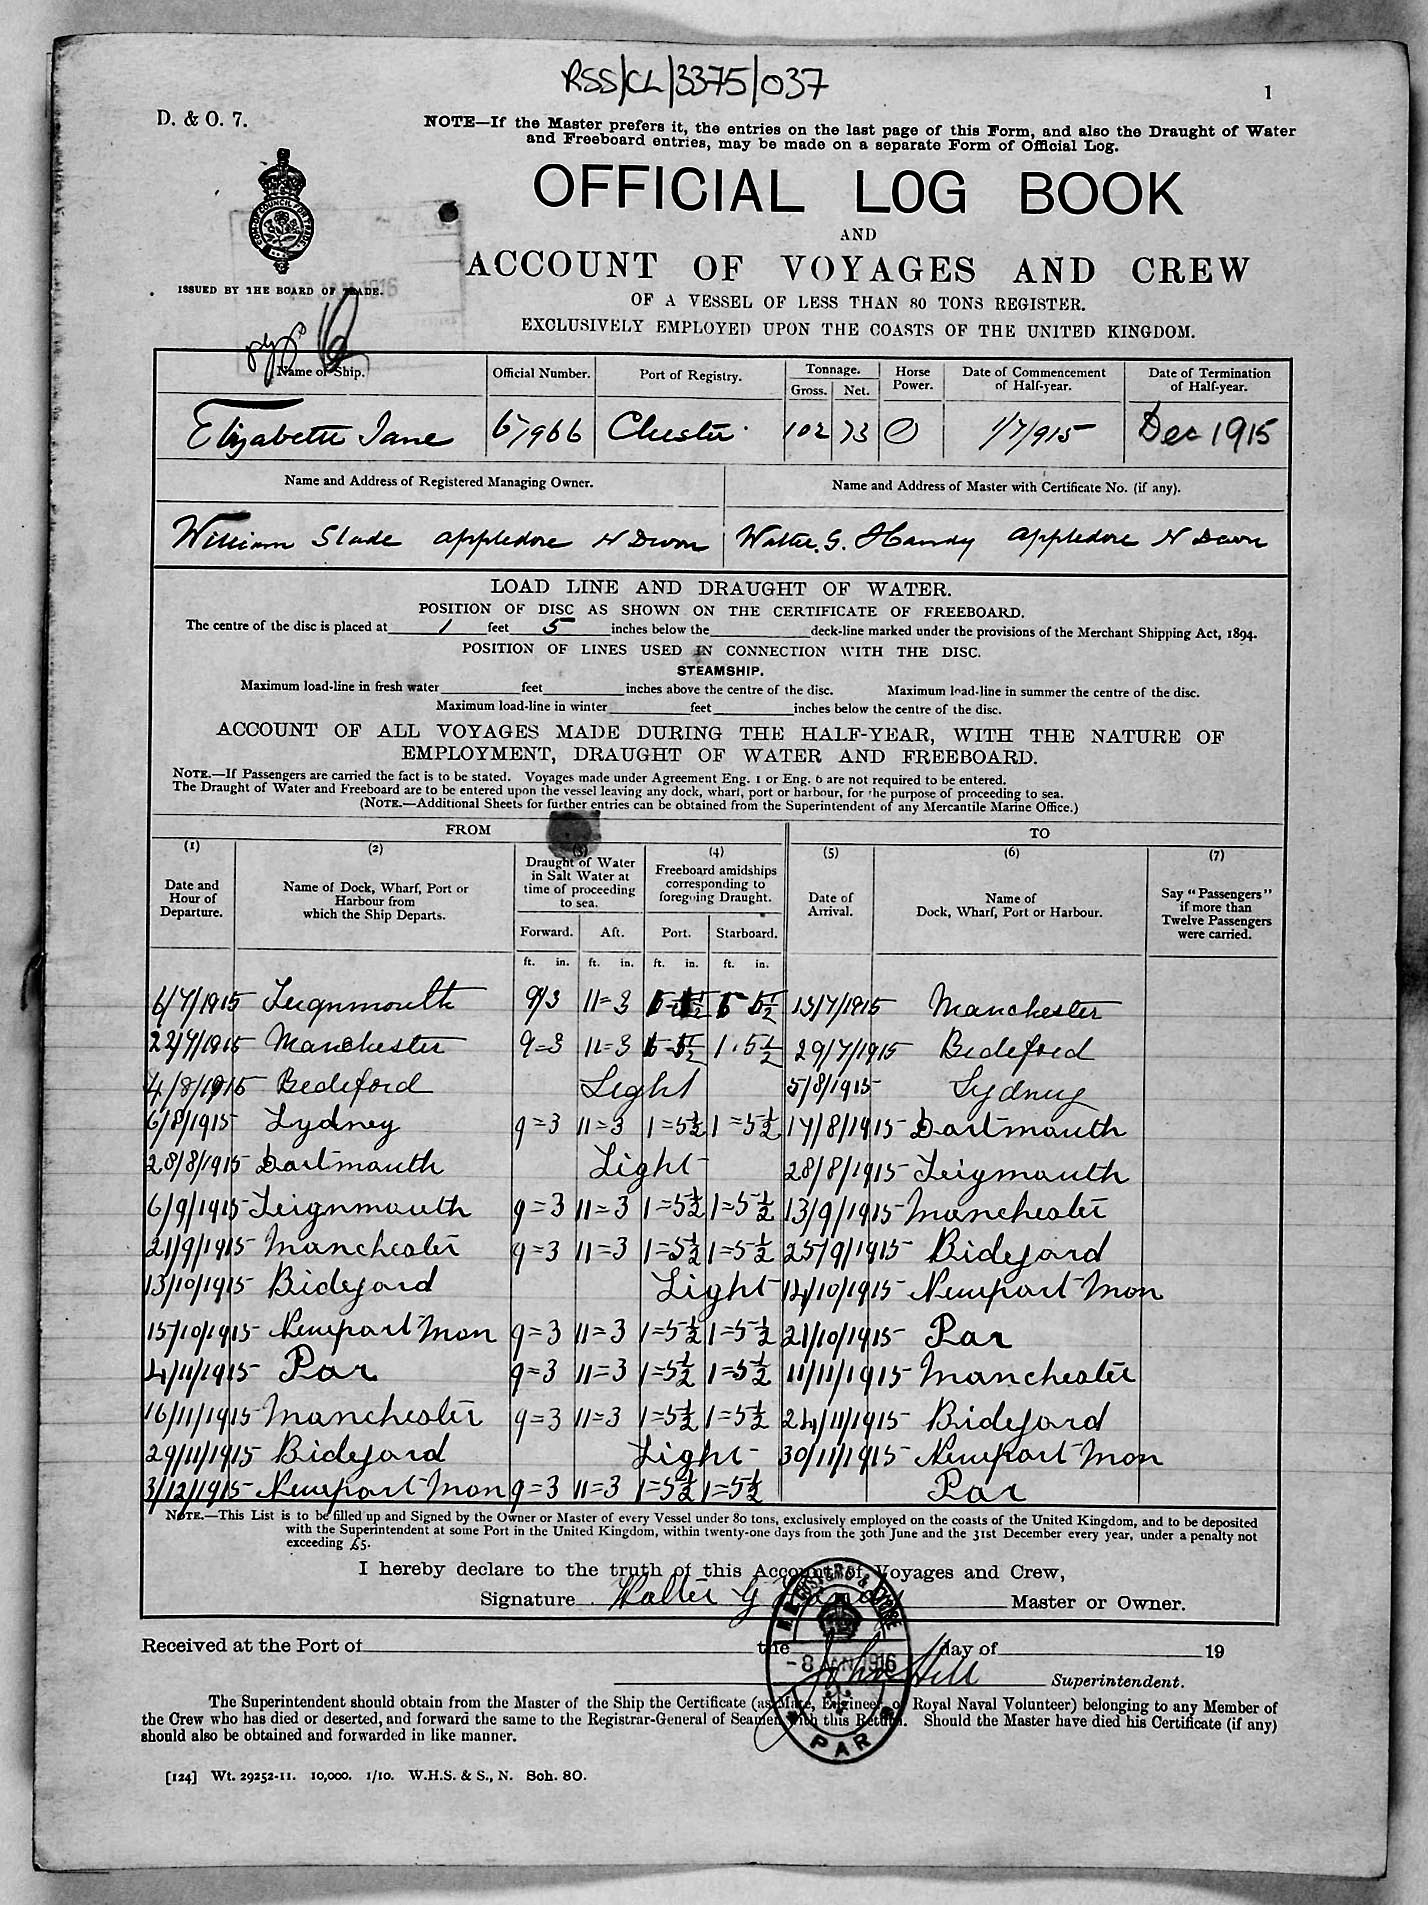 RSS/CL/3375/037
1
D. & O. 7.
NOTE—If the Master prefers it, the entries on the last page of this Form, and also the Draught of Water
and Freeboard entries, may be made on a separate Form of Official Log.
OFFICIAL LOG BOOK
AND
ACCOUNT OF VOYAGES AND CREW
OF A VESSEL OF LESS THAN 80 TONS REGISTER.
EXCLUSIVELY EMPLOYED UPON THE COASTS OF THE UNITED KINGDOM.
ISSUED BY THE BOARD OF TRADE.
Name of Ship. Official Number. Port of Registry. Tonnage. Gross. Net. Horse Power. Date of Commencement of Half-year. Date of Termination of Half-year.
Elizabeth Jane 67966 Chester 102 73 O 1/7/915 Dec 1915
Name and Address of Registered Managing Owner. Name and Address of Master with Certificate No. (if any).
William Slade appledore N Devon Walter. G. Hamdy appledore N Devon
LOAD LINE AND DRAUGHT OF WATER.
POSITION OF DISC AS SHOWN ON THE CERTIFICATE OF FREEBOARD.
The centre of the disc is placed at 1 feet 5 inches below the deck-line marked under the provisions of the Merchant Shipping Act, 1894.
POSITION OF LINES USED IN CONNECTION WITH THE DISC.
STEAMSHIP.
Maximum load-line in fresh water feet inches above the centre of the disc. Maximum load-line in summer the centre of the disc.
Maximum load-line in winter feet inches below the centre of the disc.
ACCOUNT OF ALL VOYAGES MADE DURING THE HALF-YEAR, WITH THE NATURE OF
EMPLOYMENT, DRAUGHT OF WATER AND FREEBOARD.
NOTE.—If Passengers are carried the fact is to be stated. Voyages made under Agreement Eng. 1 or Eng. 6 are not required to be entered.
The Draught of Water and Freeboard are to be entered upon the vessel leaving any dock, wharf, port or harbour, for the purpose of proceeding to sea.
(NOTE.—Additional Sheets for further entries can be obtained from the Superintendent of any Mercantile Marine Office.)
FROM TO
(1) (2) (3) (4) (5) (6) (7)
Date and Hour of Departure. Name of Dock, Wharf, Port or Harbour from which the Ship Departs. Draught of Water in Salt Water at time of proceeding to sea. Freeboard amidships corresponding to foregoing Draught. Date of Arrival. Name of Dock, Wharf, Port or Harbour. Say "Passengers" if more than Twelve Passengers were carried.
Forward. Aft. Port. Starboard.
ft. in. ft. in. ft. in. ft. in.
6/7/1915 Teignmouth 9/3 11=3 5½ 13/7/1915 Manchester
22/7/1915 Manchester 9=3 11=3 5½ 1.5½ 29/7/1915 Bedeford
4/8/1915 Bedeford Light 5/8/1915 Lydney
6/8/1915 Lydney 9=3 11=3 1=5½ 1=5½ 17/8/1915 Dartmouth
28/8/1915 Dartmouth Light 28/8/1915 Teigmouth
6/9/1915 Teignmouth 9=3 11=3 1=5½ 1=5½ 13/9/1915 Manchester
21/9/1915 Manchester 9=3 11=3 1=5½ 1=5½ 25/9/1915 Bideford
13/10/1915 Bideford Light 14/10/1915 Newport Mon
15/10/1915 Newport Mon 9=3 11=3 1=5½ 1=5½ 21/10/1915 Par
4/11/1915 Par 9=3 11=3 1=5½ 1=5½ 11/11/1915 Manchester
16/11/1915 Manchester 9=3 11=3 1=5½ 1=5½ 24/11/1915 Bideford
29/11/1915 Bideford Light 30/11/1915 Newport Mon
3/12/1915 Newport Mon 9=3 11=3 1=5½ 1=5½ Par
NOTE.—This List is to be filled up and Signed by the Owner or Master of every Vessel under 80 tons, exclusively employed on the coasts of the United Kingdom, and to be deposited
with the Superintendent at some Port in the United Kingdom, within twenty-one days from the 30th June and the 31st December every year, under a penalty not
exceeding £5.
I hereby declare to the truth of this Account of Voyages and Crew,
Signature Walter G Master or Owner.
Received at the Port of the day of 19
-8 JAN 1916
John Hill Superintendent.
PAR
The Superintendent should obtain from the Master of the Ship the Certificate (as Mate, Engineer, or Royal Naval Volunteer) belonging to any Member of
the Crew who has died or deserted, and forward the same to the Registrar-General of Seamen with this Return. Should the Master have died his Certificate (if any)
should also be obtained and forwarded in like manner.
[124] Wt. 29252-11. 10,000. 1/10. W.H.S. & S., N. Sch. 80.